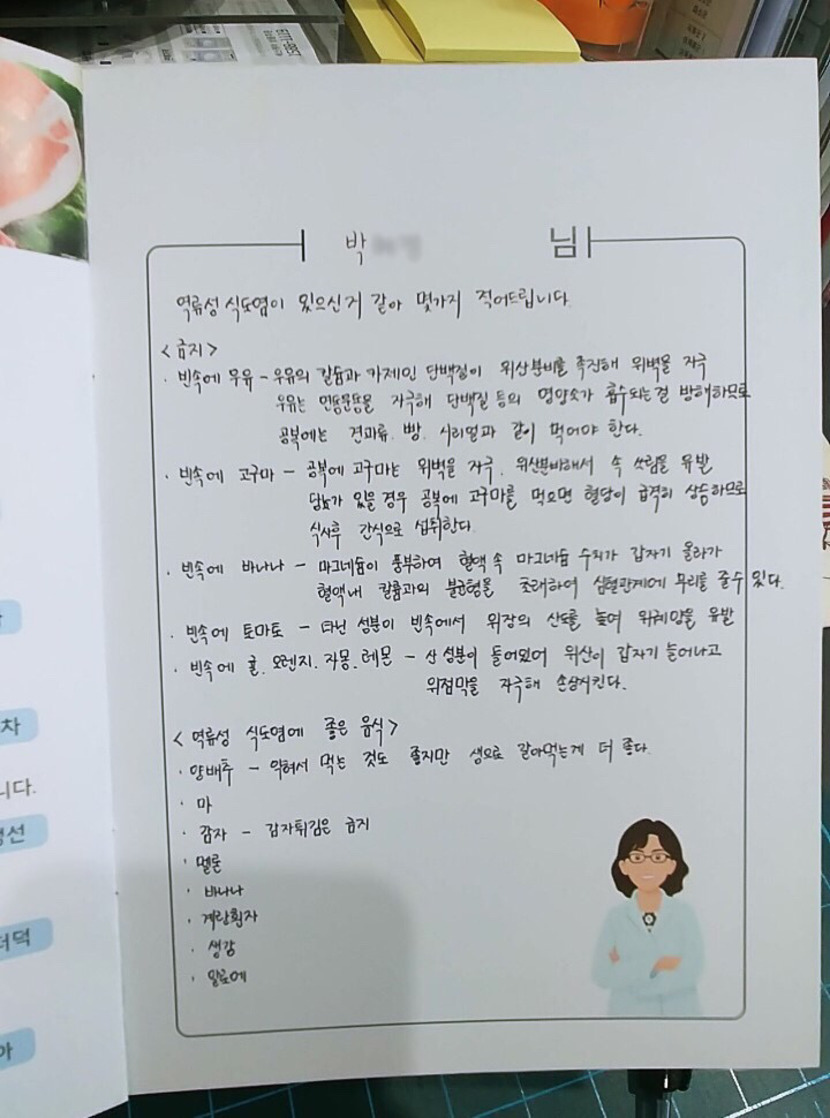 박 님
역류성 식도염이 있으신거 같아 몇가지 적어드립니다.
<금지>
· 빈속에 우유 - 우유의 칼슘과 카제인 단백질이 위산분비를 촉진해 위벽을 자극
우유는 연동운동을 자극해 단백질 등의 영양소가 흡수되는걸 방해하므로
공복에는 견과류, 빵, 시리얼과 같이 먹어야 한다.
· 빈속에 고구마 - 공복에 고구마는 위벽을 자극, 위산분비해서 속 쓰림을 유발
당뇨가 있을 경우 공복에 고구마를 먹으면 혈당이 급격히 상승하므로
식사후 간식으로 섭취한다.
· 빈속에 바나나 - 마그네슘이 풍부하여 혈액 속 마그네슘 수치가 갑자기 올라가
혈액내 칼륨과의 불균형을 초래하여 심혈관계에 무리를 줄수 있다.
· 빈속에 토마토 - 타닌 성분이 빈속에서 위장의 산도를 높여 위궤양을 유발
· 빈속에 귤. 오렌지. 자몽. 레몬 - 산 성분이 들어있어 위산이 갑자기 늘어나고
위점막을 자극해 손상시킨다.
<역류성 식도염에 좋은 음식>
· 양배추 - 익혀서 먹는 것도 좋지만 생으로 갈아먹는게 더 좋다.
· 마
· 감자 - 감자튀김은 금지
· 멜론
· 바나나
· 계란흰자
· 생강
· 알로에
차
니다.
선
더덕
아